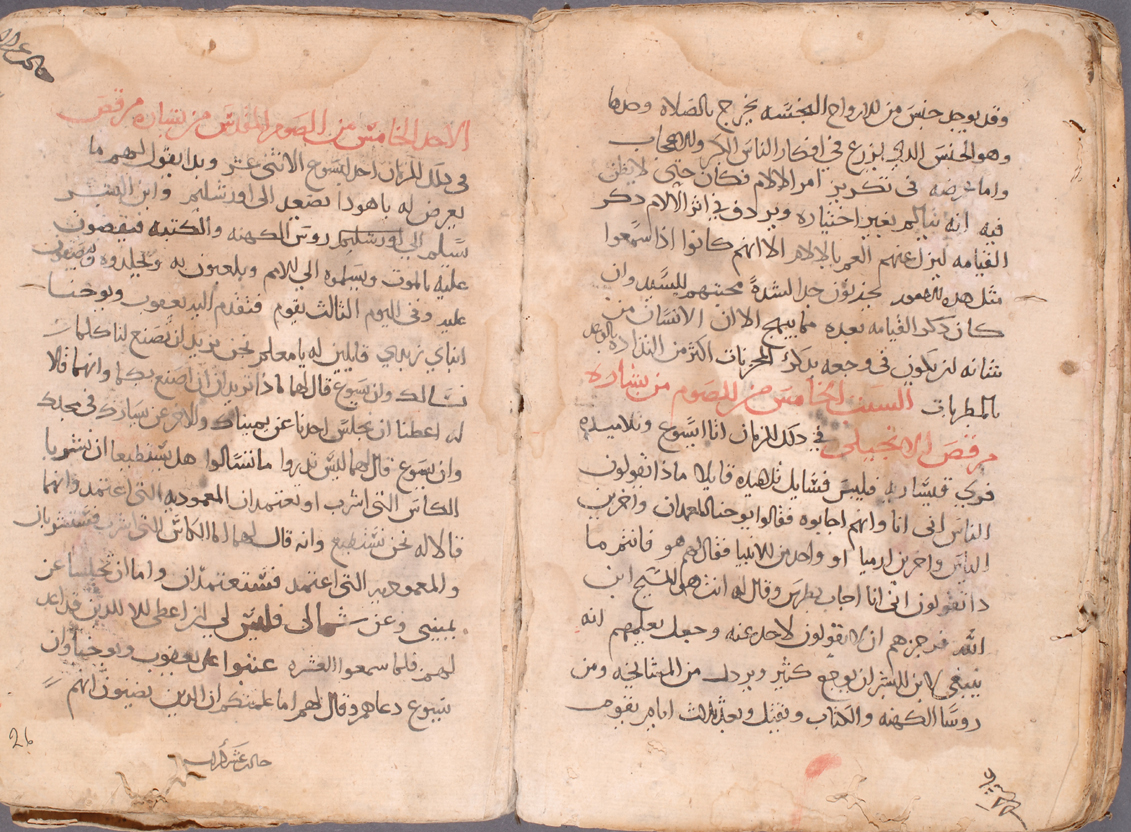 وقد يوجد جنس من الارواح النجسه يخرج بالصلاه وحدها
وهو الجنس الذي يزرع في افكار الناس الكبر والاعجاب
واما غرضه في تكرير امر الالام فكان حتى لا يظن
فيه انه تيالم بغير اختياره ويردف في اثر الالام ذكر
القيامه ليزل عنهم الغم بالالام الا انهم كانوا اذا سمعوا
مثل هذه الامور يحزنون جدا لشدة محبتهم للسيد وان
كان ذكر القيامه بعده مما يبهج الا ان الانسان من
شانه ان يكون في وجعه بذكر المحزنات اكثر من التذاذه بالوعد
بالمطربات السبت الخامس من الصوم من بشاره
مرقص الانجيلي في ذلك الزمان اتا ايسوع وتلاميذه
قري قيساريه فيلبس فسايل تلاميذه قايلا ماذا تقولون
الناس اني انا وانهم اجابوه فقالوا يوحنا المعمدان واخرين
الياس واخرين ارميا او واحد من الانبيا فقال لهم هو فانتم ما
ذا تقولون اني انا اجاب بطرس وقال له انت هو المسيح ابن
الله فزجرهم ان لا يقولون لاحد عنه وجعل يعلمهم انه
ينبغي لابن البشر ان يوجع كثير ويرذل من المشايخه ومن
روسا الكهنه والكتاب ويقتل وبعد ثلاث ايام يقوم
الاحد الخامس من الصوم المقدس من بشاره مرقص
في ذلك الزمان اخذ ايسوع الاثنى عشر وبدا يقول لهم ما
يعرض له ياهوذا نصعد الى اورشليم وابن البشر
سيسلم الي روس الكهنه والكتبه فيقضون
عليه بالموت ويسلموه الي الامم ويلعبون به ويجلدوه ويبصقون
عليه وفي اليوم الثالث يقوم فتقدم اليه يعقوب ويوحنا
ابناي زبدي قايلين له يا معلم نحن نريد ان تصنع لنا كلما
نسالك وان يسوع قال لهما ماذا تريدان ان اصنع بكما وانهما قالا
له اعطنا ان يجلس احدنا عن يمينك والاخر عن يسارك في مجدك
وان يسوع قال لهما ليس تدروا ما تسالوا هل تستطيعا ان تشربا
الكاس التي اشرب او تعتمدان المعموديه التي اعتمد وانهما
قالا له نحن نستطيع وانه قال لهما اما الكاس التي اشرب فستشربان
والمعموديه التي اعتمد فستعتمدان واما ان تجلسا عن
يميني وعن شمالى فليس لي ان اعطي الا للذين قد اعد
لهم فلما سمعوا العشره عتبوا على يعقوب ويوحنا وان
يسوع دعاهم وقال لهم اما علمتم ان الذين يصيرون انهم
26